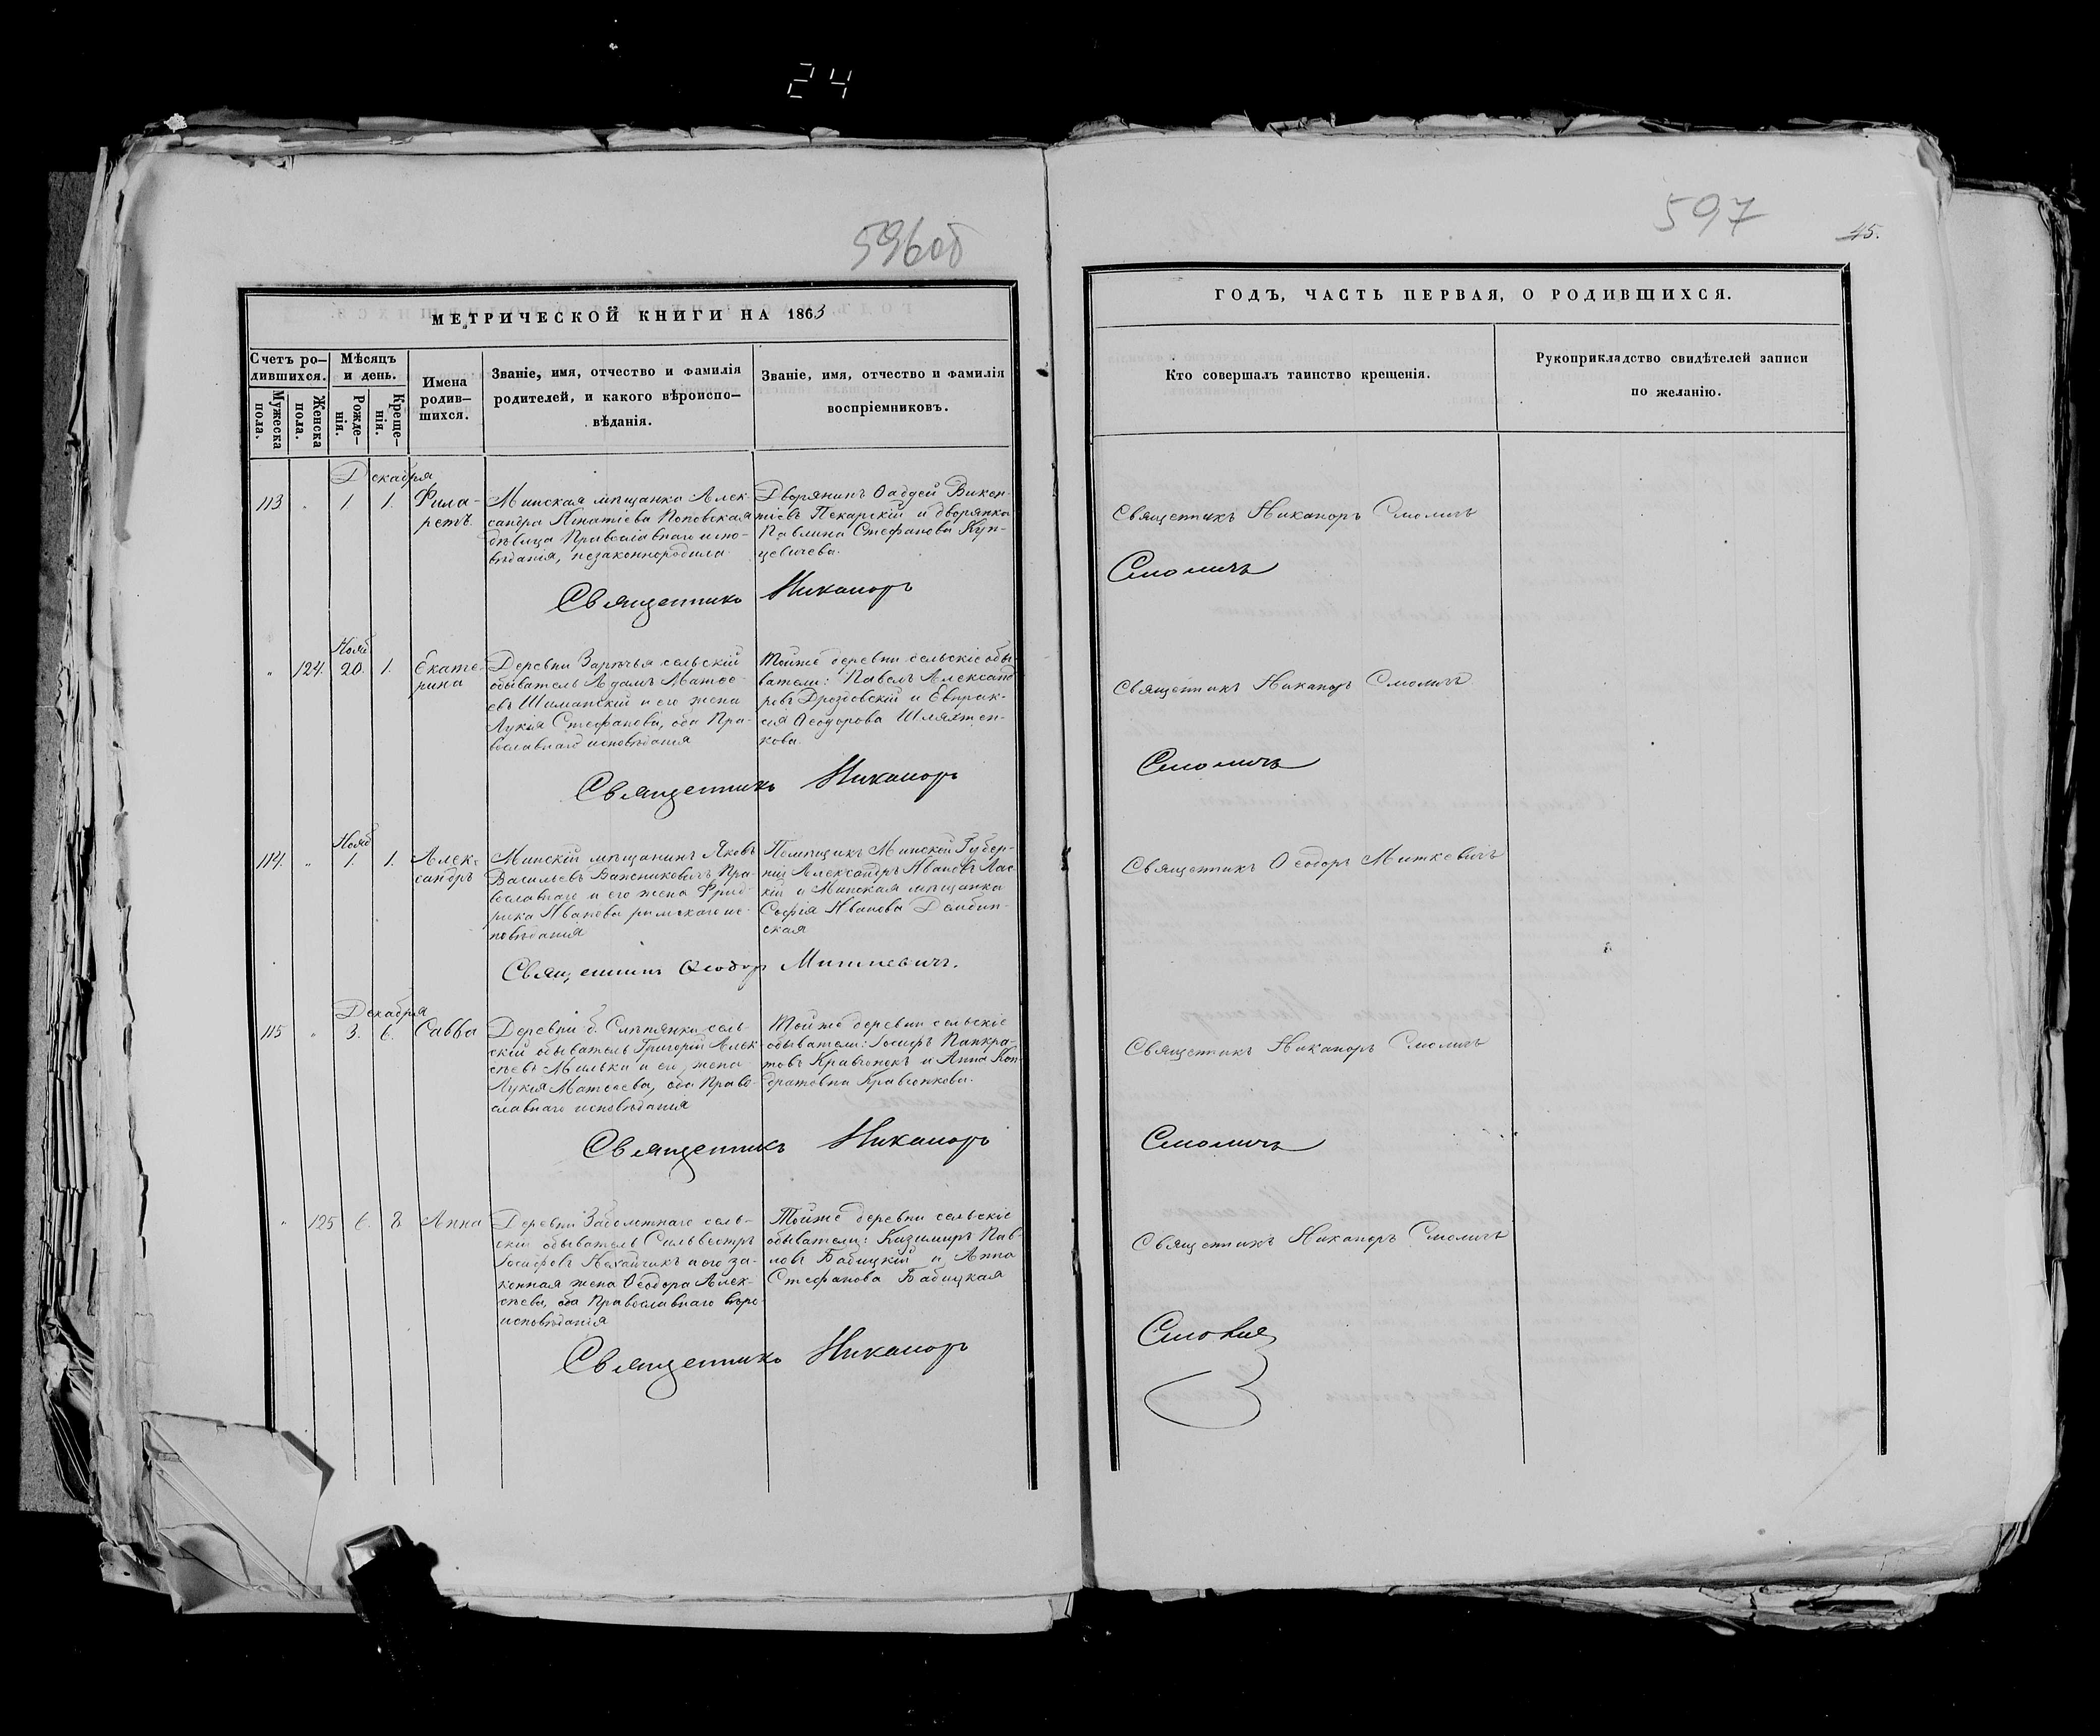 24
596об
597
45.
МЕТРИЧЕСКОЙ КНИГИ НА 1863
ГОДЪ, ЧАСТЬ ПЕРВАЯ, О РОДИВШИХСЯ.
Счетъ ро-
дившихся.
Мужеска
пола.
Женска
пола.
Мѣсяцъ
и день.
Рожде-
нія.
Креще-
нія.
Имена
родив-
шихся.
Званіе, имя, отчество и фамилія
родителей, и какого вѣроиспо-
вѣданія.
Званіе, имя, отчество и фамилія
воспріемниковъ.
Кто совершалъ таинство крещенія.
Рукоприкладство свидѣтелей записи
по желанію.
Декабря
113 " 1. 1. Фила-
ретъ.
Минская мѣщанка Алек-
сандра Игнатіева Поповская
дѣвица Православнаго испо-
вѣданія, незаконнородила.
Дворянинъ Ѳаддей Викен-
тіевъ Пекарскій и дворянка
Павлина Стефанова Кун-
цевичева.
Священникъ Никаноръ Смоличъ
Священникъ Никаноръ
Смоличъ
Нояб
" 124. 20. 1. Екате-
рина
Деревни Зарѣчья сельскій
обыватель Адамъ Матѳе-
евъ Шиманскій и его жена
Лукія Стефанова, оба Пра-
вославнаго исповѣданія
Тойже деревни сельскіе обы-
ватели: Павелъ Александ
ровъ Дроздовскій и Евпрак-
сія Ѳеодорова Шляхтен-
кова.
Священникъ Никаноръ Смоличъ
Священникъ Никаноръ
Смоличъ
Нояб
114. " 1. 1. Алек-
сандръ
Минскій мѣщанинъ Яковъ
Васильевъ Бансниковичъ Пра-
вославнаго и его жена Фрид-
рика Иванова римскаго ис-
повѣданія
Помѣщикъ Минской Губер-
ніи Александръ Ивановъ Лас-
кій и Минская мѣщанка
Софія Иванова Дембин-
ская
Священникъ Ѳеодоръ Миткевичъ
Священникъ Ѳеодоръ Миткевичъ.
Декабря
115 " 3. 6. Савва
Деревни б. Слѣпянки сель-
скій обыватель Григорій Алек
сѣевъ Милька и его жена
Лукія Матѳеева, оба Право-
славнаго исповѣданія
Тойже деревни сельскіе
обыватели: Іосифъ Панкра-
товъ Кравчонокъ и Анна Кон-
дратовна Кравчонкова.
Священникъ Никаноръ Смоличъ
Священникъ Никаноръ
Смоличъ
" 125 6. 8. Анна
Деревни Заболотнаго сель-
скій обыватель Сильвестръ
Іосифовъ Нехайчикъ и его за-
конная жена Ѳеодора Алек-
сѣева, оба Православнаго вѣро-
исповѣданія
Тойже деревни сельскіе
обыватели: Казимиръ Пав-
ловъ Бабицкій и Анна
Стефанова Бабицкая
Священникъ Никаноръ Смоличъ
Священникъ Никаноръ
Смоличъ